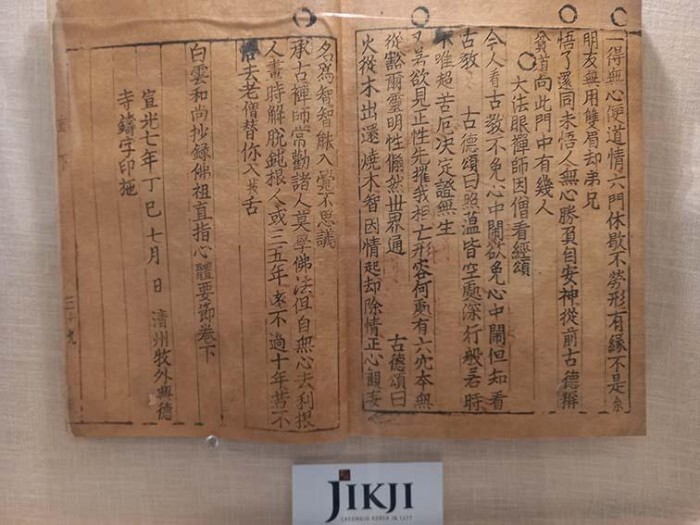 一得無心便道情六門休歇不勞形有緣不是余
朋友無用雙眉却弟兄
悟了還同未悟人無心勝負自安神從前古德稱
貧道向此門中有幾人
大法眼禪師因僧看經頌
今人看古教不免心中鬧欲免心中鬧但知看
古教 古德頌曰照蘊皆空處深行般若時
不唯超苦厄決定證無生
又若欲見正性先摧我相亡形容何處有六穴本無
從豁爾靈明性翛然世界通 古德頌曰
火從木出還燒木智因情起却除情正心觀妄
名爲智智能入毫不思議
承古禪師常勸諸人莫學佛法但自無心去利根
人晝時解脫鈍根人或三五年遠不過十年若不
悟去老僧替你入拔舌
白雲和尚抄錄佛祖直指心體要節卷下
宣光七年丁巳七月 日 清州牧外興德
寺鑄字印施
三十九
JIKJI
KOREA IN 1377